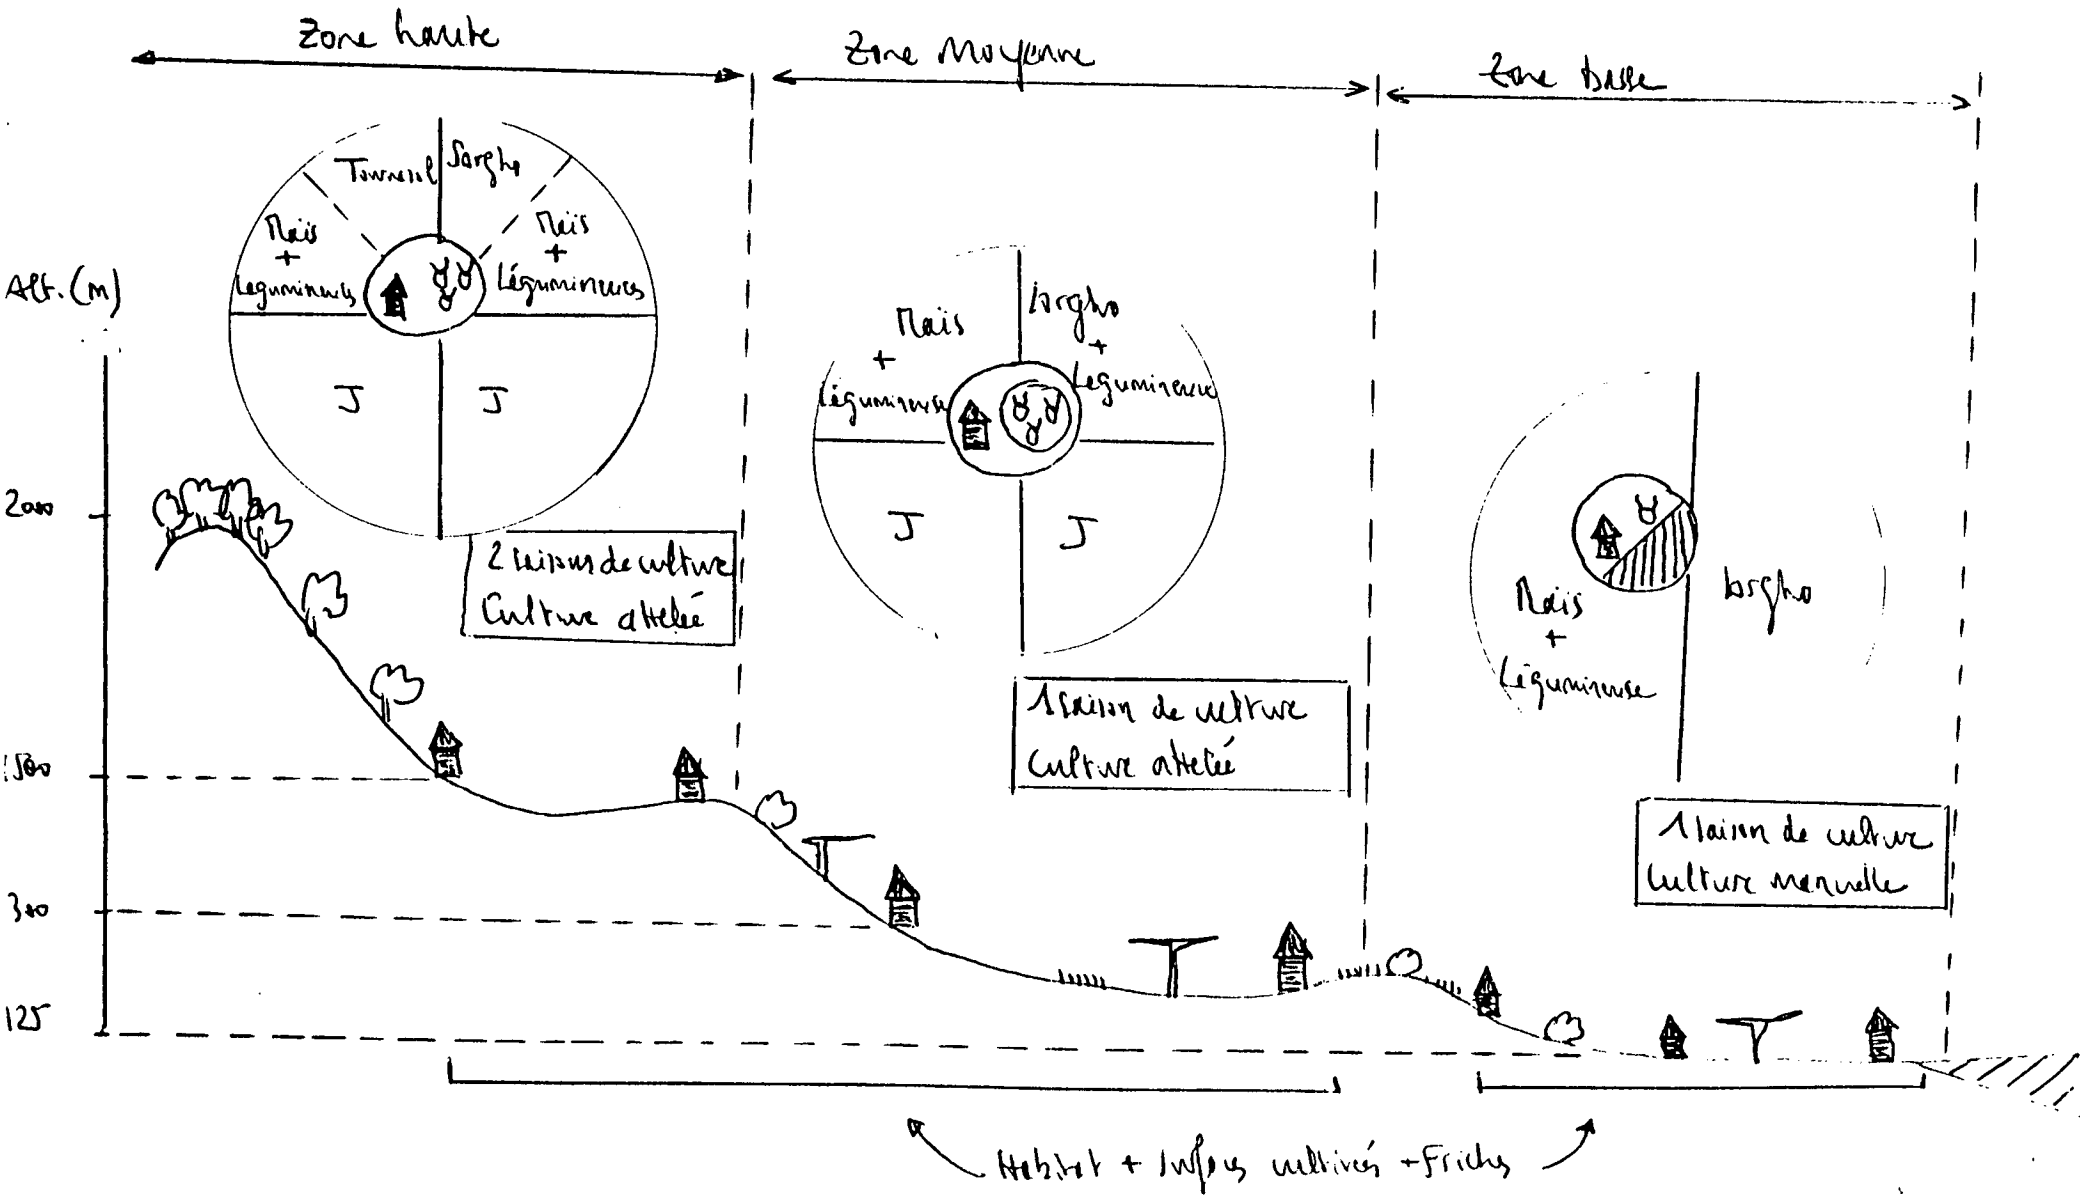 Zone haute
Zone Moyenne
Zone basse
Tournesol
Sorgho
Maïs
+
Légumineuses
Maïs
+
Légumineuses
J
J
2 saisons de culture
Culture attelée
Maïs
+
Légumineuse
Sorgho
+
Légumineuse
J
J
1 saison de culture
Culture attelée
Maïs
+
Légumineuse
Sorgho
1 saison de culture
Culture manuelle
Alt. (m)
2000
1500
300
125
Habitat + surfaces cultivées + Friches